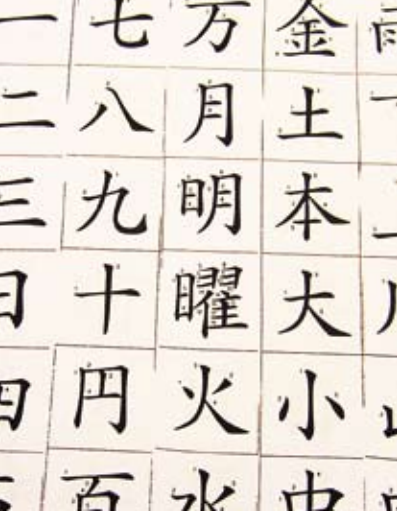 一 七 万 金
二 八 月 土
三 九 明 本
日 十 曜 大
四 円 火 小
百 水 中